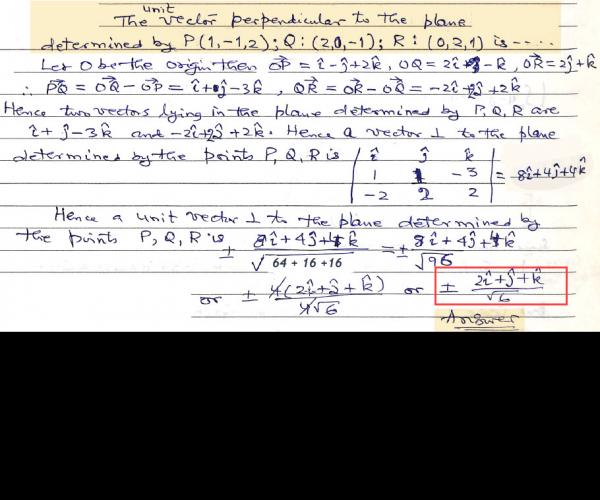 unit
The vector perpendicular to the plane
determined by P(1,-1,2); Q:(2,0,-1); R:(0,2,1) is ....
Let O be the origin then OP⃗ = î-ĵ+2k̂, OQ = 2î - k̂, OR⃗ = 2ĵ+k̂
∴ PQ⃗ = OQ⃗ - OP⃗ = î+ĵ-3k̂, QR⃗ = OR⃗ - OQ⃗ = -2î+2ĵ+2k̂
Hence two vectors lying in the plane determined by P, Q, R are
î+ĵ-3k̂ and -2î+2ĵ+2k̂. Hence a vector ⊥ to the plane
determined by the points P, Q, R is | î ĵ k̂ |
| 1 1 -3 | = 8î+4ĵ+4k̂
| -2 2 2 |
Hence a unit vector ⊥ to the plane determined by
the points P, Q, R is ± (8î+4ĵ+4k̂)/√(64+16+16) = ± (8î+4ĵ+4k̂)/√96
or ± 4(2î+ĵ+k̂)/4√6 or ± (2î+ĵ+k̂)/√6
Answer